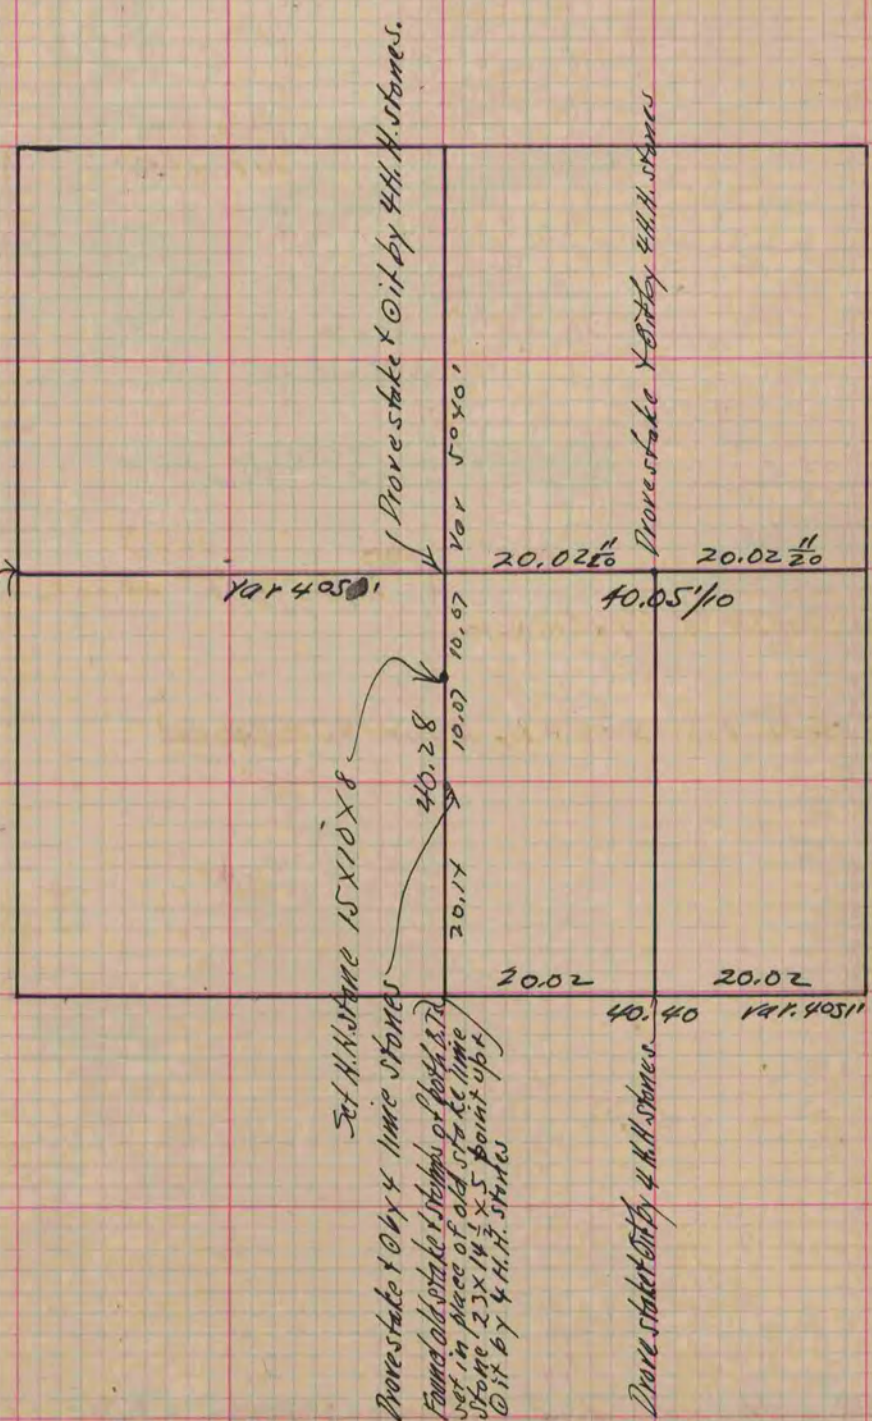 Drove stake & ⊙ it by 4 H.H. stones.
Drove stake & ⊙ it by 4 H.H. stones
Var 5°40'
20.02 11/20
20.02 11/20
Var 4°
40.05 1/10
10.07
10.07
40.28
20.14
Set H.H. stone 15 X 10 X 8
20.02
20.02
40.40
Var. 4°51'
Drove stake & ⊙ by 4 lime stones
Found old stake & stumps of both B.Ts
set in place of old stake lime
stone 23 X 14 1/2 X 5 point up &
⊙ it by 4 H.H. stones
Drove stake & ⊙ it by 4 H.H. stones